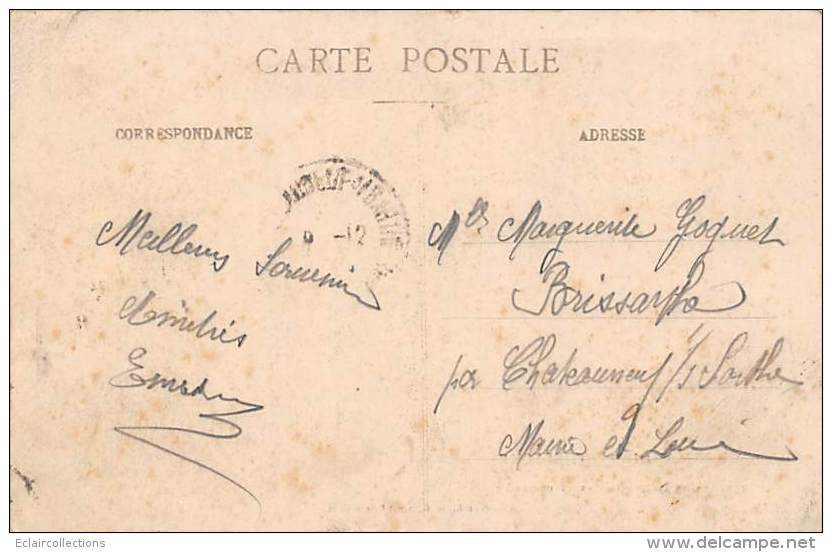 CARTE POSTALE
CORRESPONDANCE
ADRESSE
Meilleurs Souvenirs
Amitiés
Mlle Marguerite Goguet
Brissarthe
par Chateauneuf s/ Sarthe
Maine et Loire
Eclaircollections
delcampe.net